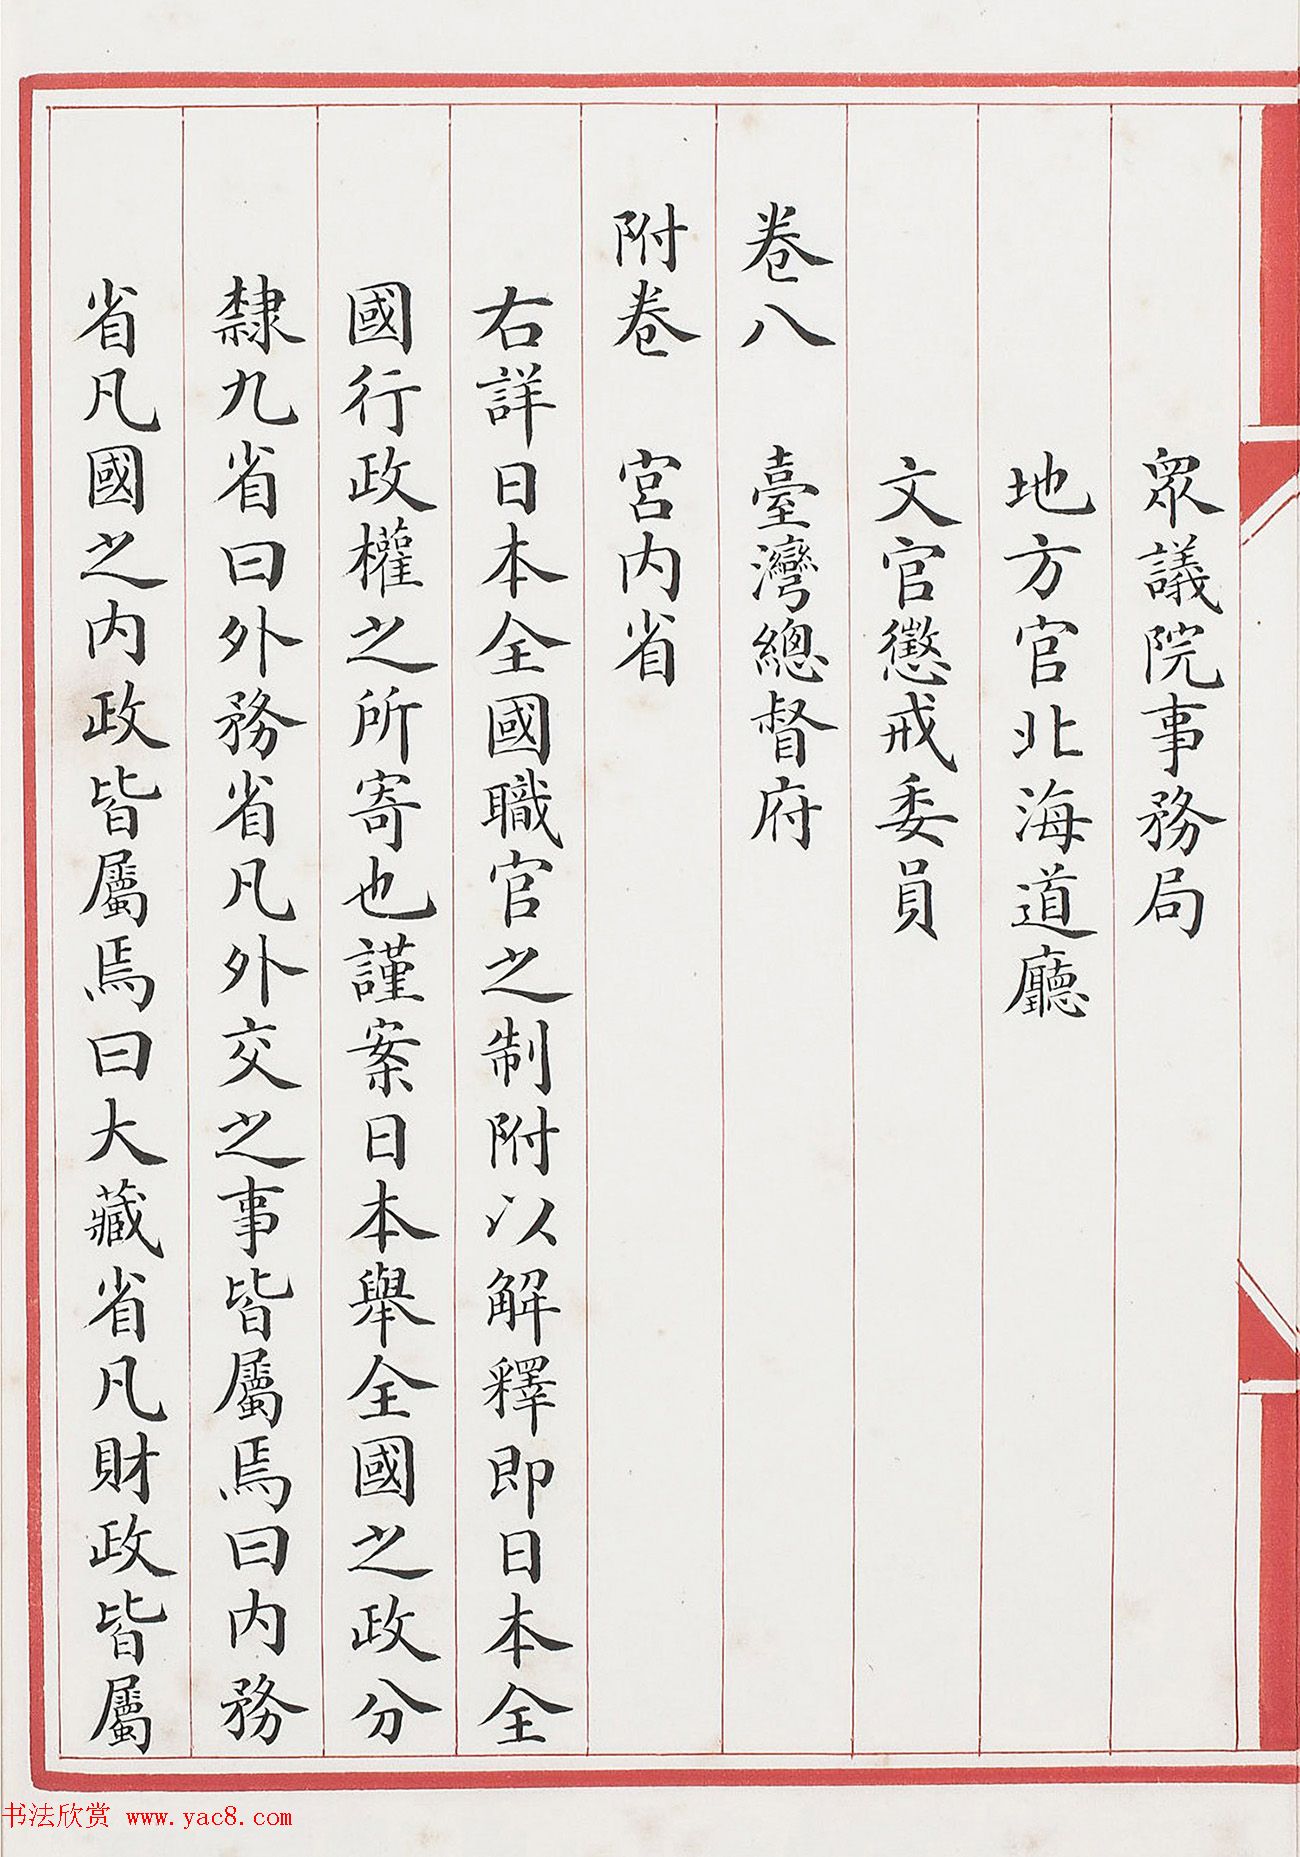 眾議院事務局
地方官北海道廳
文官懲戒委員
卷八 臺灣總督府
附卷 宮内省
右詳日本全國職官之制附以解釋即日本全
國行政權之所寄也謹案日本舉全國之政分
隸九省曰外務省凡外交之事皆屬焉曰内務
省凡國之内政皆屬焉曰大藏省凡財政皆屬
书法欣赏 www.yac8.com